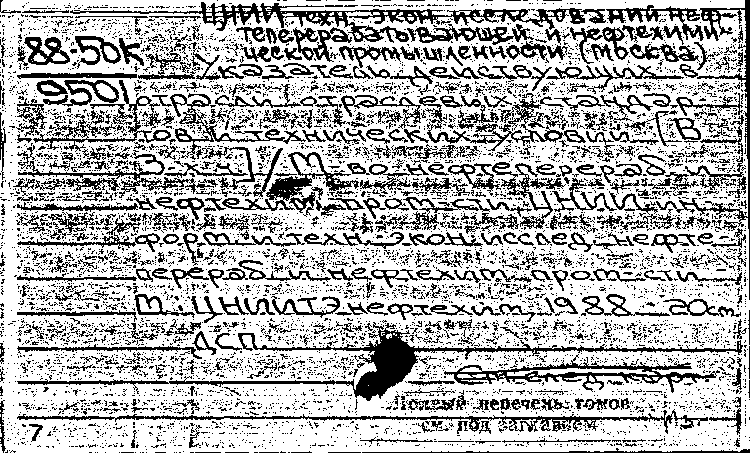 ЦНИИ техн.-экон. исследований неф-
теперерабатывающей и нефтехими-
88-50к
ческой промышленности (Москва)
Указатель действующих в
9501
отрасли отраслевых стандар-
тов и технических условий. [В
3-х ч.] / М-во нефтеперераб. и
нефтехим. пром-сти, ЦНИИ ин-
форм. и техн.-экон. исслед. нефте-
перераб. и нефтехим. пром-сти. -
М.: ЦНИИТЭнефтехим, 1988. - 20см.
ДСП.
См. след. карт.
Полный перечень томов
см. под заглавием
7